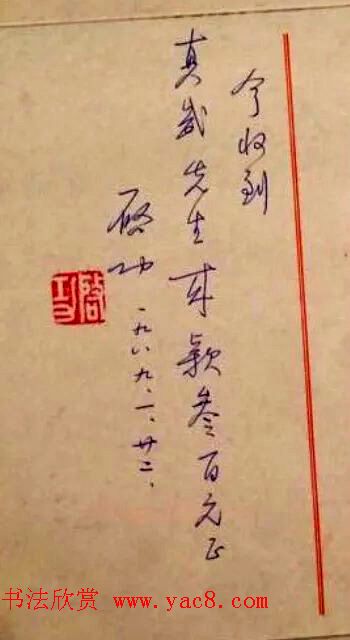 今收到
真先生款叁百元正
啓功 一九八九.一.廿二.
啓功
书法欣赏 www.yac8.com